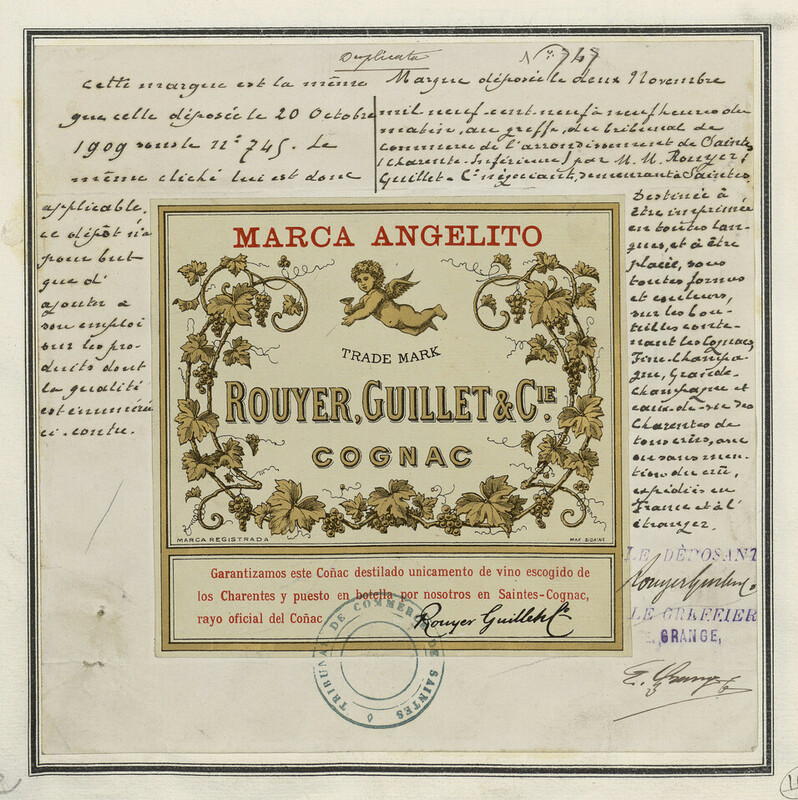 Duplicata
N° 747
Cette marque est la même
que celle déposée le 20 Octobre
1909 sous le n° 745. Le
même cliché lui est donc
applicable.
ce dépôt n'a
pour but
que d'
ajouter a
son emploi
sur les pro-
duits dont
la qualité
est énumérée
ci-contre.
Marque déposée le deux Novembre
mil neuf-cent-neuf à neuf heures du
matin, au greffe du tribunal de
commerce de l'arrondissement de Saintes
(Charente-Inférieure) par M. M. Rouyer,
Guillet & Cie négociants, demeurant à Saintes.
Destinée à
être imprimée
en toutes lan-
gues, et à être
placée, sous
toutes formes
et couleurs,
sur les bou-
teilles conte-
nant les Cognacs
Fine-Champa-
gne, Grande-
Champagne et
eaux-de-vie des
Charentes de
tous crûs, avec
ou sans men-
tion du crû,
expédiés en
France et à l'
étranger.
LE DÉPOSANT
Rouyer Guillet & Co
LE GREFFIER
E. GRANGE,
E. Grange
MARCA ANGELITO
TRADE MARK
ROUYER, GUILLET & CIE.
COGNAC
MARCA REGISTRADA
Garantizamos este Coñac destilado unicamento de vino escogido de
los Charentes y puesto en botella por nosotros en Saintes-Cognac,
rayo oficial del Coñac
Rouyer Guillet & Co
TRIBUNAL DE COMMERCE DE SAINTES